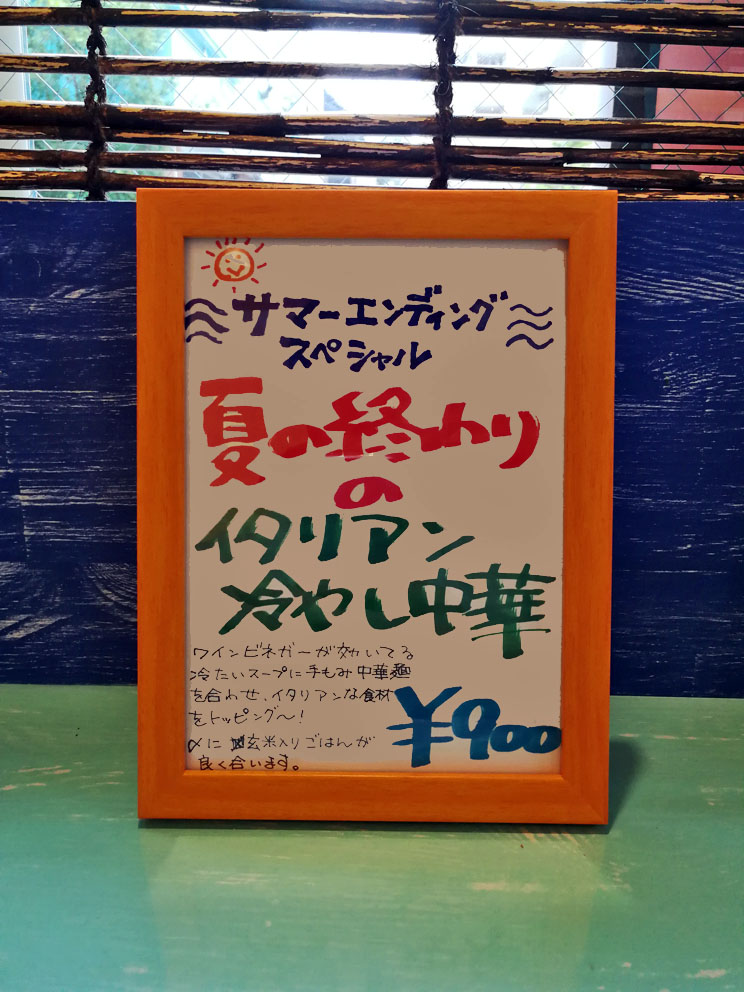 サマーエンディング
スペシャル
夏の終わり
の
イタリアン
冷やし中華
ワインビネガーが効いてる
冷たいスープに手もみ中華麺
を合わせ、イタリアンな食材
をトッピング〜!
¥900
〆に玄米入りごはんが
良く合います。